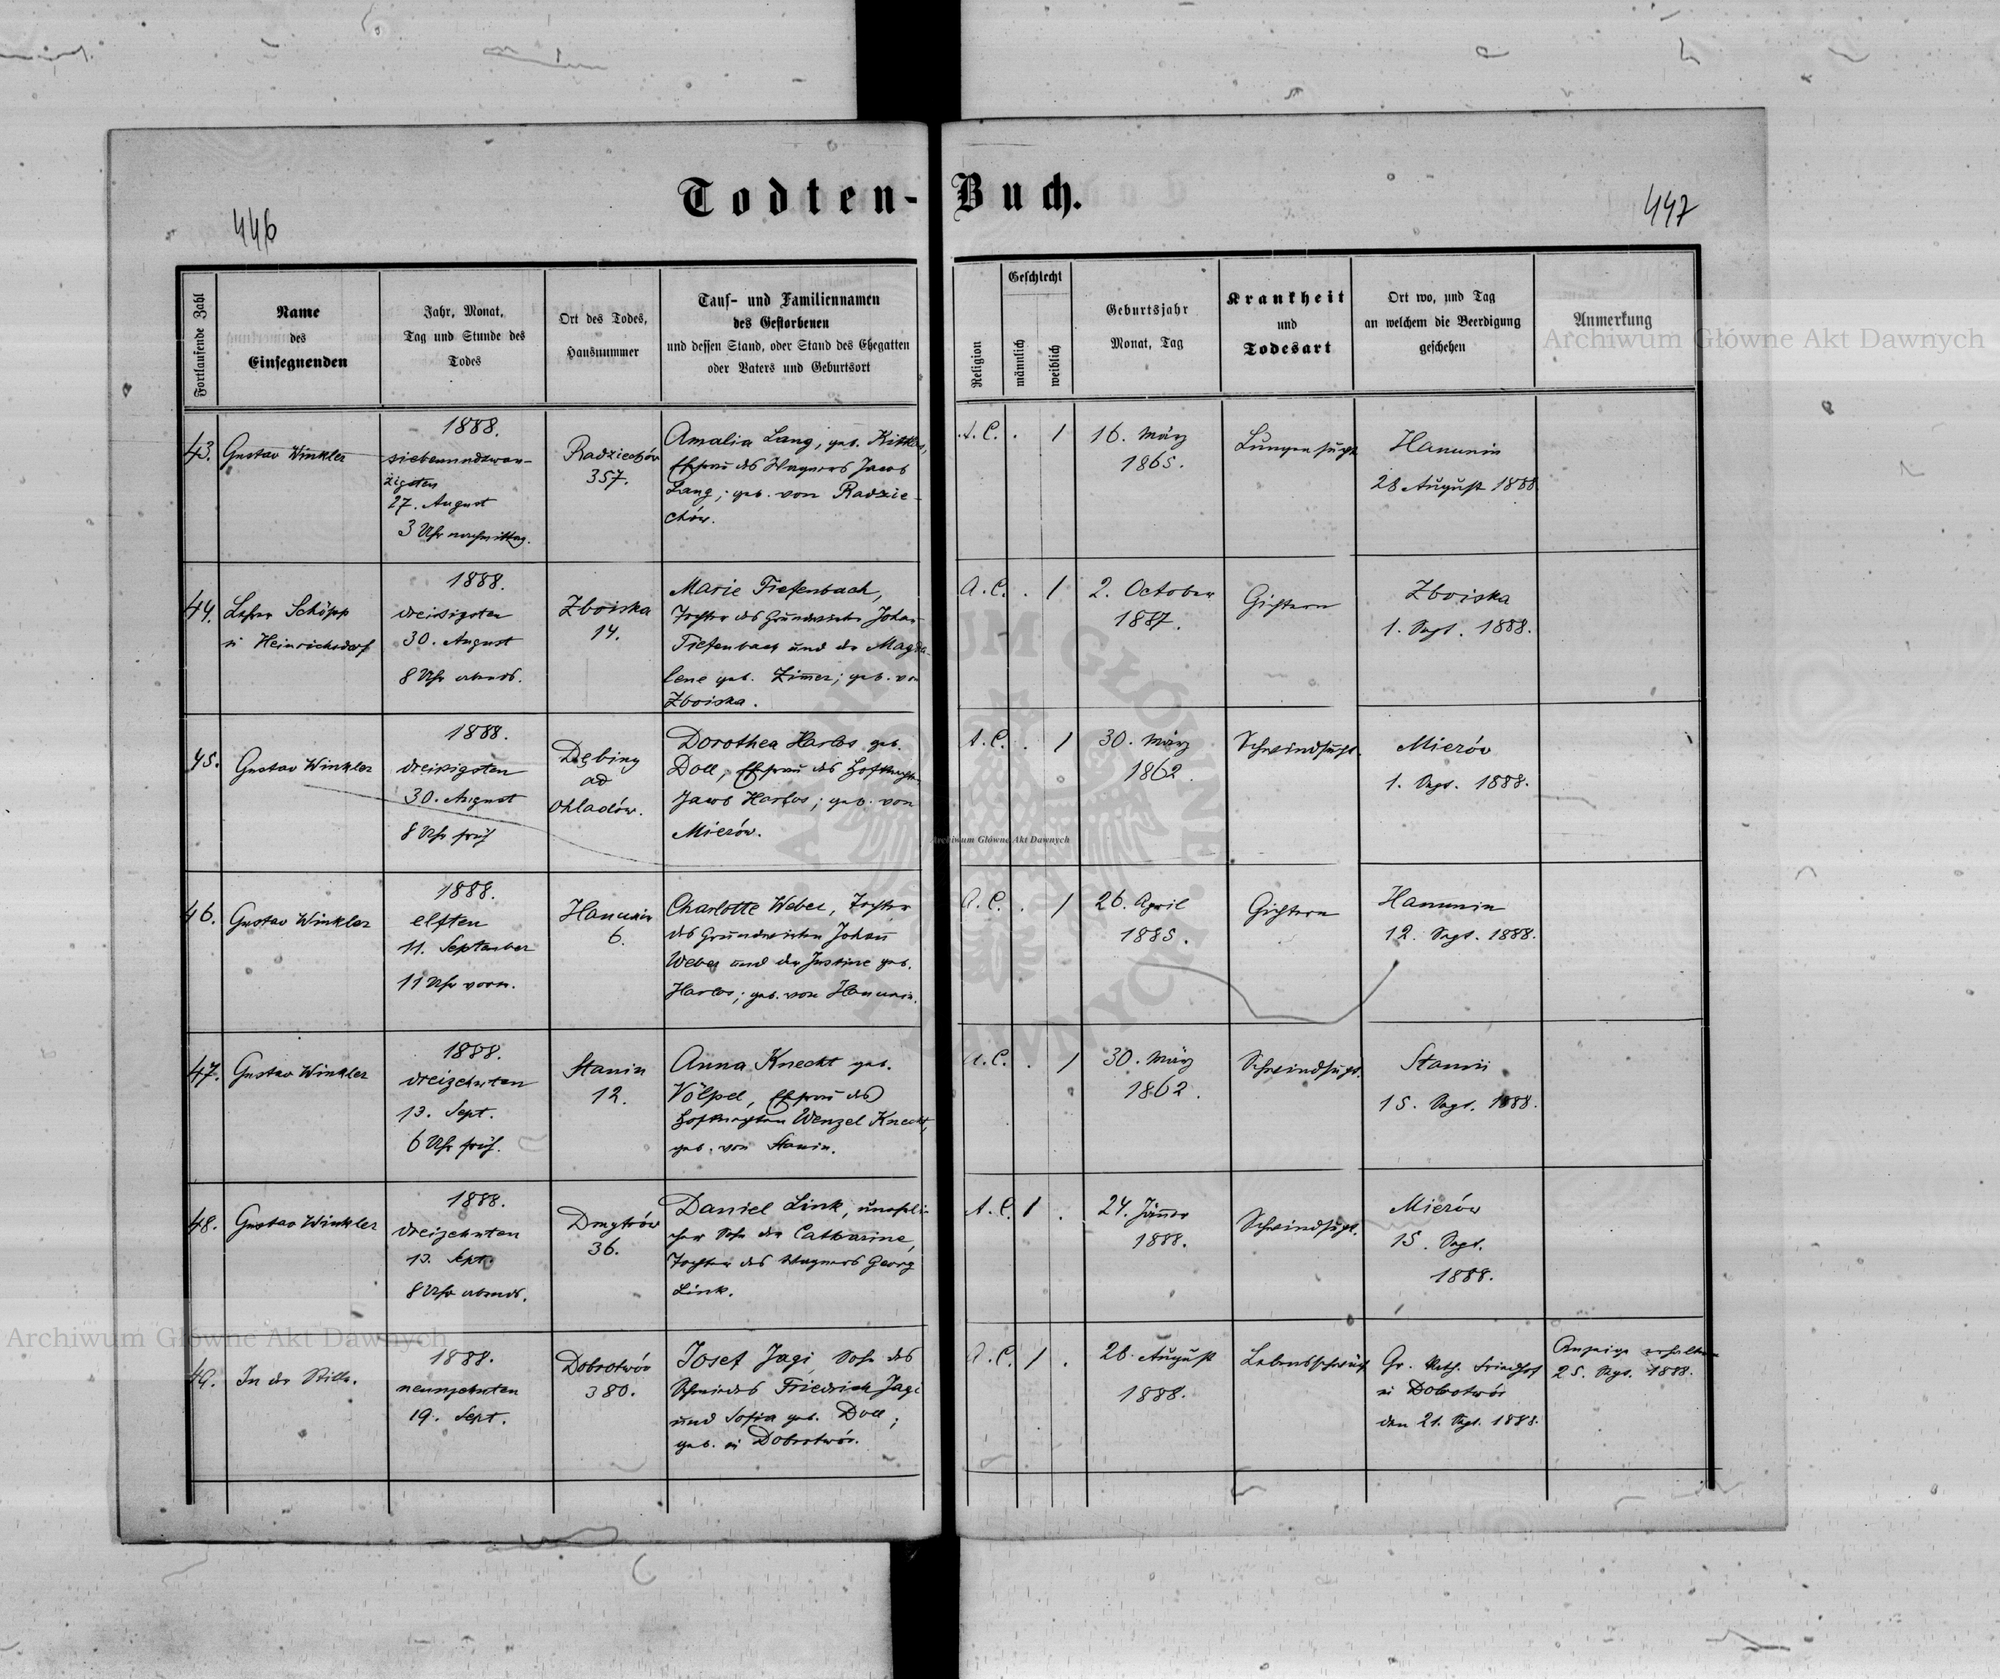 Todten-Buch.
446
447
Fortlaufende Zahl
Name
des
Einsegnenden
Jahr, Monat,
Tag und Stunde des
Todes
Ort des Todes,
Hausnummer
Tauf- und Familiennamen
des Gestorbenen
und dessen Stand, oder Stand des Ehegatten
oder Vaters und Geburtsort
Religion
Geschlecht
männlich
weiblich
Geburtsjahr
Monat, Tag
Krankheit
und
Todesart
Ort wo, und Tag
an welchem die Beerdigung
geschehen
Anmerkung
43.
Gustav Winkler
1888.
siebenundzwan-
zigsten
27. August
3 Uhr nachmittag.
Radziechów
357.
Amalia Lang, geb.
Ehefrau des Wagners Jacob
Lang; geb. von Radzie-
chów.
A.C. . 1
16. März
1865.
Lungensucht
Hanunin
28 August 1888
44.
Lehrer Schöpp
in Heinrichsdorf
1888.
dreisigsten
30. August
8 Uhr abends.
Zboiska
14.
Marie Tiefenbach,
Tochter des Grundwirten Johan
Tiefenbach und der Magda-
lene geb. Zimmer; geb. von
Zboiska.
A.C. . 1
2. October
1887.
Gichtern
Zboiska
1. Sept. 1888.
45.
Gustav Winkler
1888.
dreisigsten
30. August
8 Uhr früh
Dębiny
ad
Ohladów.
Dorothea Harlos geb.
Doll, Ehefrau des
Jacob Harlos; geb. von
Mierów.
A.C. . 1
30. März
1862.
Schwindsucht.
Mierów
1. Sept. 1888.
46.
Gustav Winkler
1888.
elften
11. September
11 Uhr vorm.
Hanunin
6.
Charlotte Weber, Tochter
des Grundwirten Johann
Weber und der Justine geb.
Harlos; geb. von Hanunin.
A.C. . 1
26. April
1885.
Gichtern
Hanunin
12. Sept. 1888.
47.
Gustav Winkler
1888.
dreizehnten
13. Sept.
6 Uhr früh.
Stanin
12.
Anna Knecht geb.
Völpel, Ehefrau des
Wenzel Knecht,
geb. von Stanin.
A.C. . 1
30. März
1862.
Schwindsucht.
Stanin
15. Sept. 1888.
48.
Gustav Winkler
1888.
dreizehnten
13. Sept.
8 Uhr abends.
Dmytrów
36.
Daniel Link, uneheli-
cher Sohn der Catharine,
Tochter des Wagners Georg
Link.
A.C. 1 .
24. Jänner
1888.
Schwindsucht.
Mierów
15. Sept.
1888.
49.
In der Stille.
1888.
neunzehnten
19. Sept.
Dobrotwór
380.
Josef Jagi, Sohn des
Schmiedes Friedrich Jagi
und Sofia geb. Doll;
geb. in Dobrotwór.
A.C. 1 .
28. August
1888.
Lebensschwäche
Gr. Kath. Friedhof
in Dobrotwór
den 21. Sept. 1888.
Anzeige erhalten
25. Sept. 1888.
Archiwum Główne Akt Dawnych
Archiwum Główne Akt Dawnych
Archiwum Główne Akt Dawnych